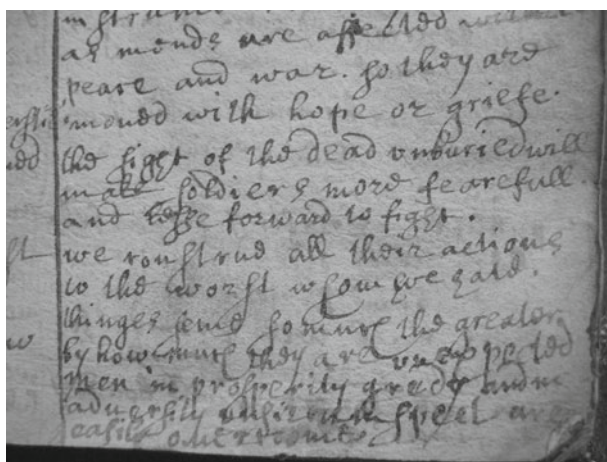 as mends are affected with
peace and war. so they are
moued with hope or griefe.
the sight of the dead vnburied will
make soldiers more fearefull
and lesse forward to fight.
we construe all their actions
to the worst whom we hate.
thinges seme so much the greater
by how much they are vnexpected
men in prosperity gredy and in
aduersity are
easily ouercome.